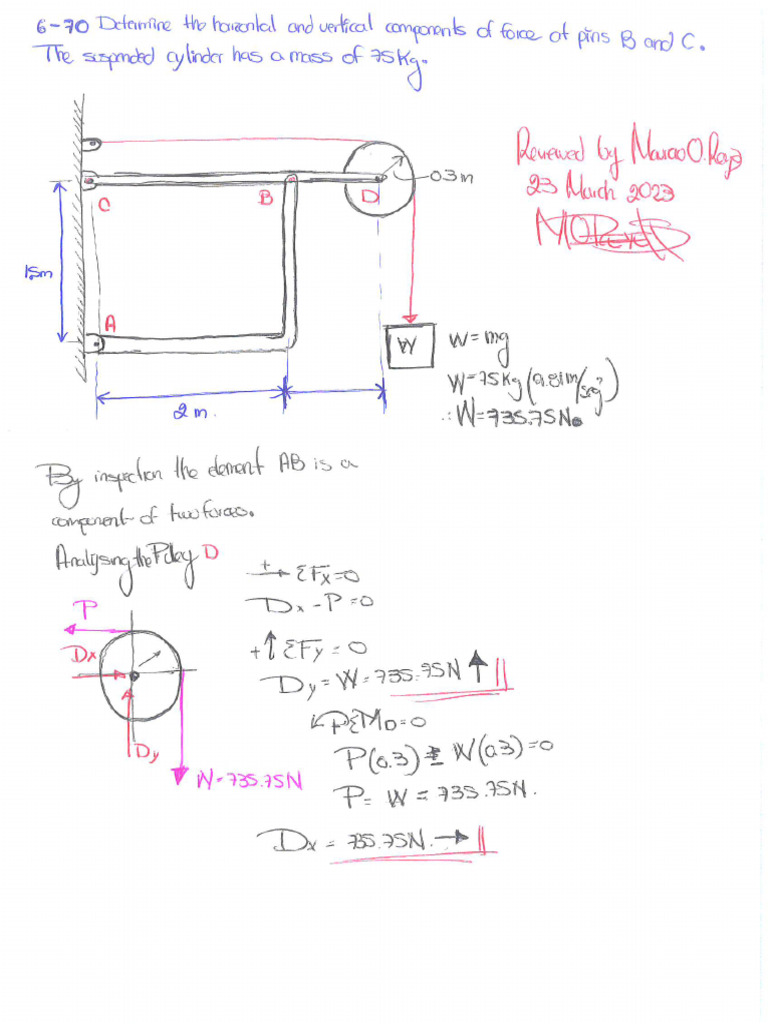 6-70 Determine the horizontal and vertical components of force at pins B and C.
The suspended cylinder has a mass of 75Kg.
Reviewed by
23 March 2023
0.3m
C
B
D
1.5m
A
W
W=mg
W=75Kg(9.81m/seg²)
∴W=735.75N.
2m.
By inspection the element AB is a
component of two forces.
Analysing the Pulley D
+→ΣFx=0
Dx-P=0
P
+↑ΣFy=0
Dx
Dy=W=735.75N↑//
A
+ΣMD=0
Dy
P(0.3)±W(0.3)=0
W=735.75N
P=W=735.75N.
Dx=735.75N.→//